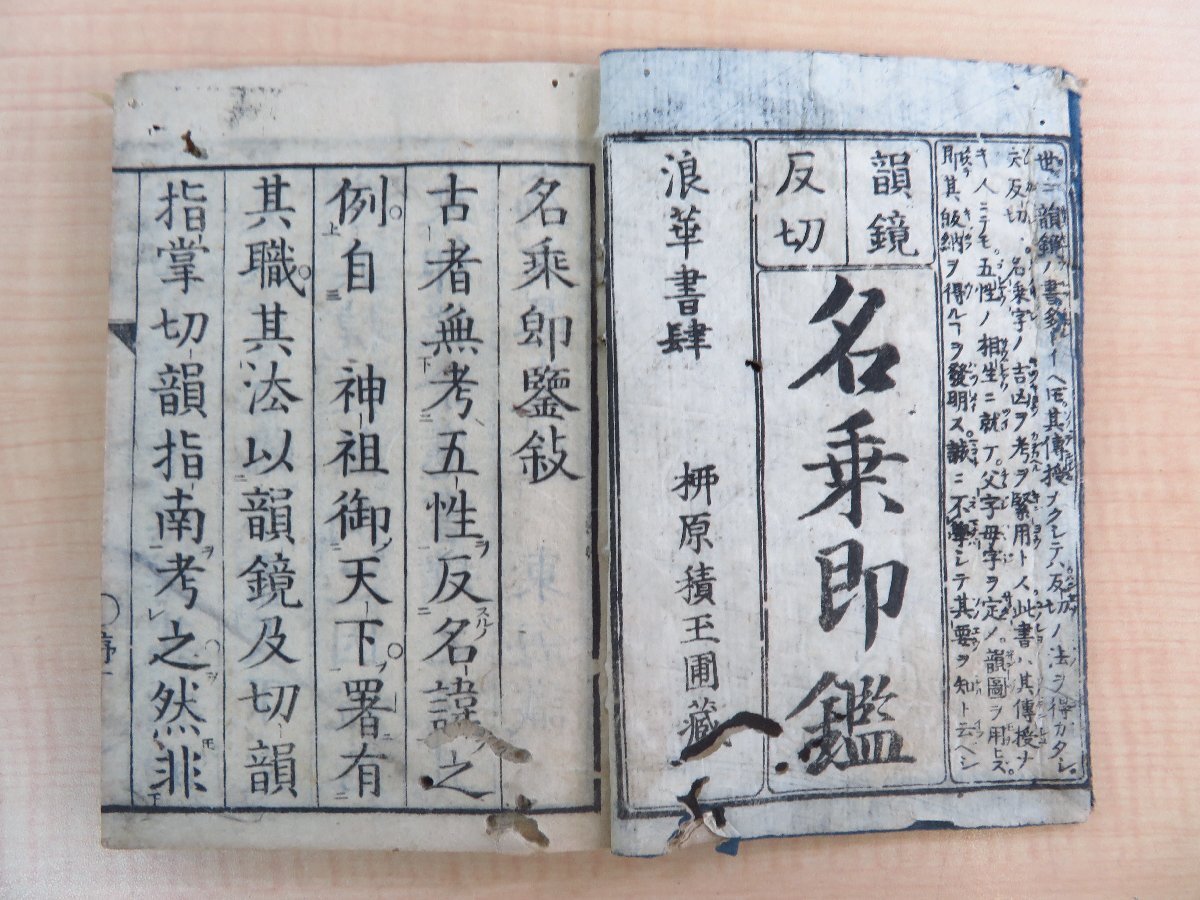 世ニ韻鏡ノ書多シトイヘ𪜈其傳授ナクシテハ反切ノ法ヲ得ガタシ。
反切。名乗字ノ吉凶ヲ考ヲ緊用ト人此書ハ其傳授ナ
キ人ニテモ。五性ノ相生ニ就テ。父字母字ヲ定メ。韻圖ヲ用ヒズ。
即其皈納ヲ得ルヿヲ發明ス。誠ニ不學ニシテ其要ヲ知ト云ヘシ
韻鏡
反切
名乗即鑑
浪華書肆 栁原積玉圃藏
名乘即鑒敍
古者無考五性反名諱之
例自 神祖御天下署有
其職其法以韻鏡及切韻
指掌切韻指南考之然非